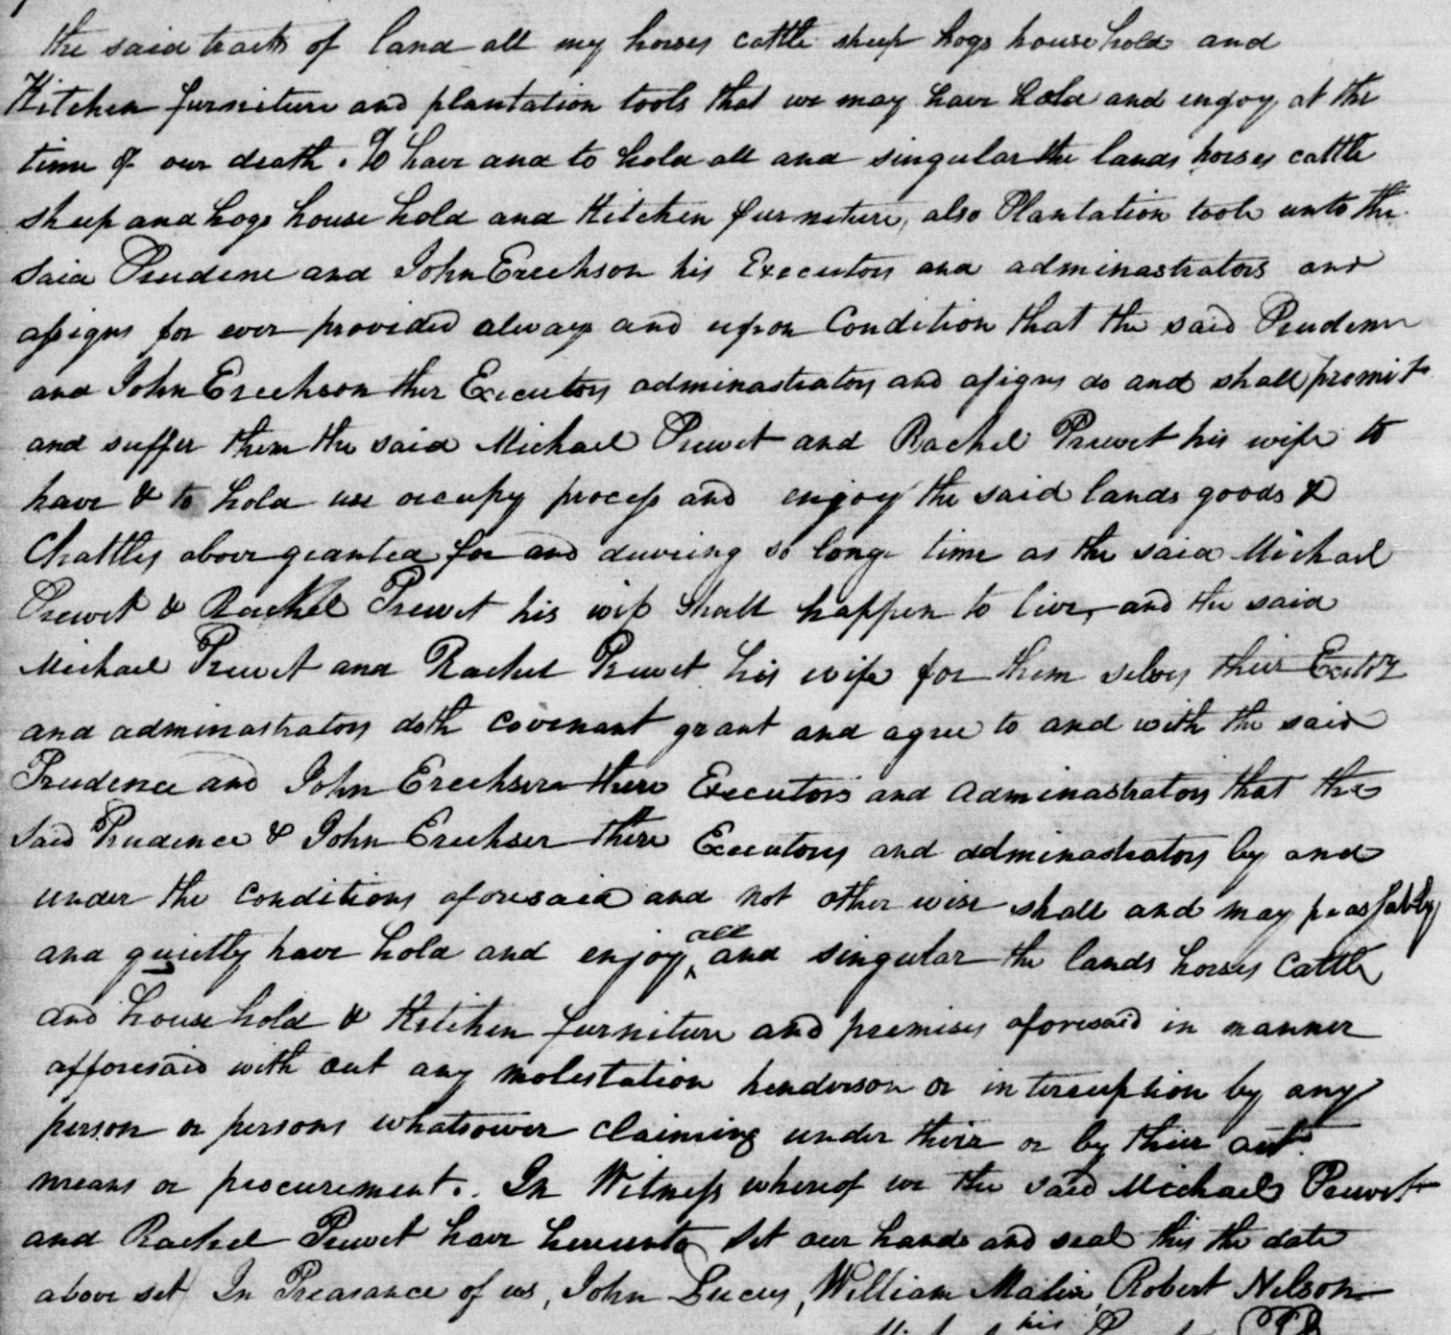 the said tracts of land all my horses cattle sheep hogs house hold and
Kitchen furniture and plantation tools that we may have hold and enjoy at the
time of our death. To have and to hold all and singular the lands horses cattle
sheep and hogs house hold and Kitchen furneture, also Plantation tools unto the
Said Prudence and John Ereckson his Executors and adminastrators and
assigns for ever provided always and upon Condition that the said Prudence
and John Ereckson ther Executors adminastrators and asigns do and shall premit
and suffer them the said Michael Prewet and Rachel Prewet his wife to
have & to hold use occupy process and enjoy the said lands goods &
Chattles above granted for and dureing so long time as the said Michael
Prewet & Rachel Prewet his wife shall happen to live, and the said
Michael Prewet and Rachel Prewet his wife for them selves their
and adminastrators doth covenant grant and agree to and with the said
Prudence and John Erecksen there Executors and adminastrators that the
Said Prudence & John Ereckser there Executors and adminastrators by and
under the conditions aforesaid and not other wise shall and may
and quietly have hold and enjoy all and singular the lands horses cattle
and house hold & Kitchen furniture and premises aforesaid in manner
afforesaid with out any molestation henderson or interruption by any
person or persons whatsoever claiming under their or by their act
means or procurement. In Witness whereof we the said Michael Prewet
and Rachel Prewet have hereunto Set our hands and seal this the date
above set In Preasance of us, John Lucus, William Robert Nelson
his